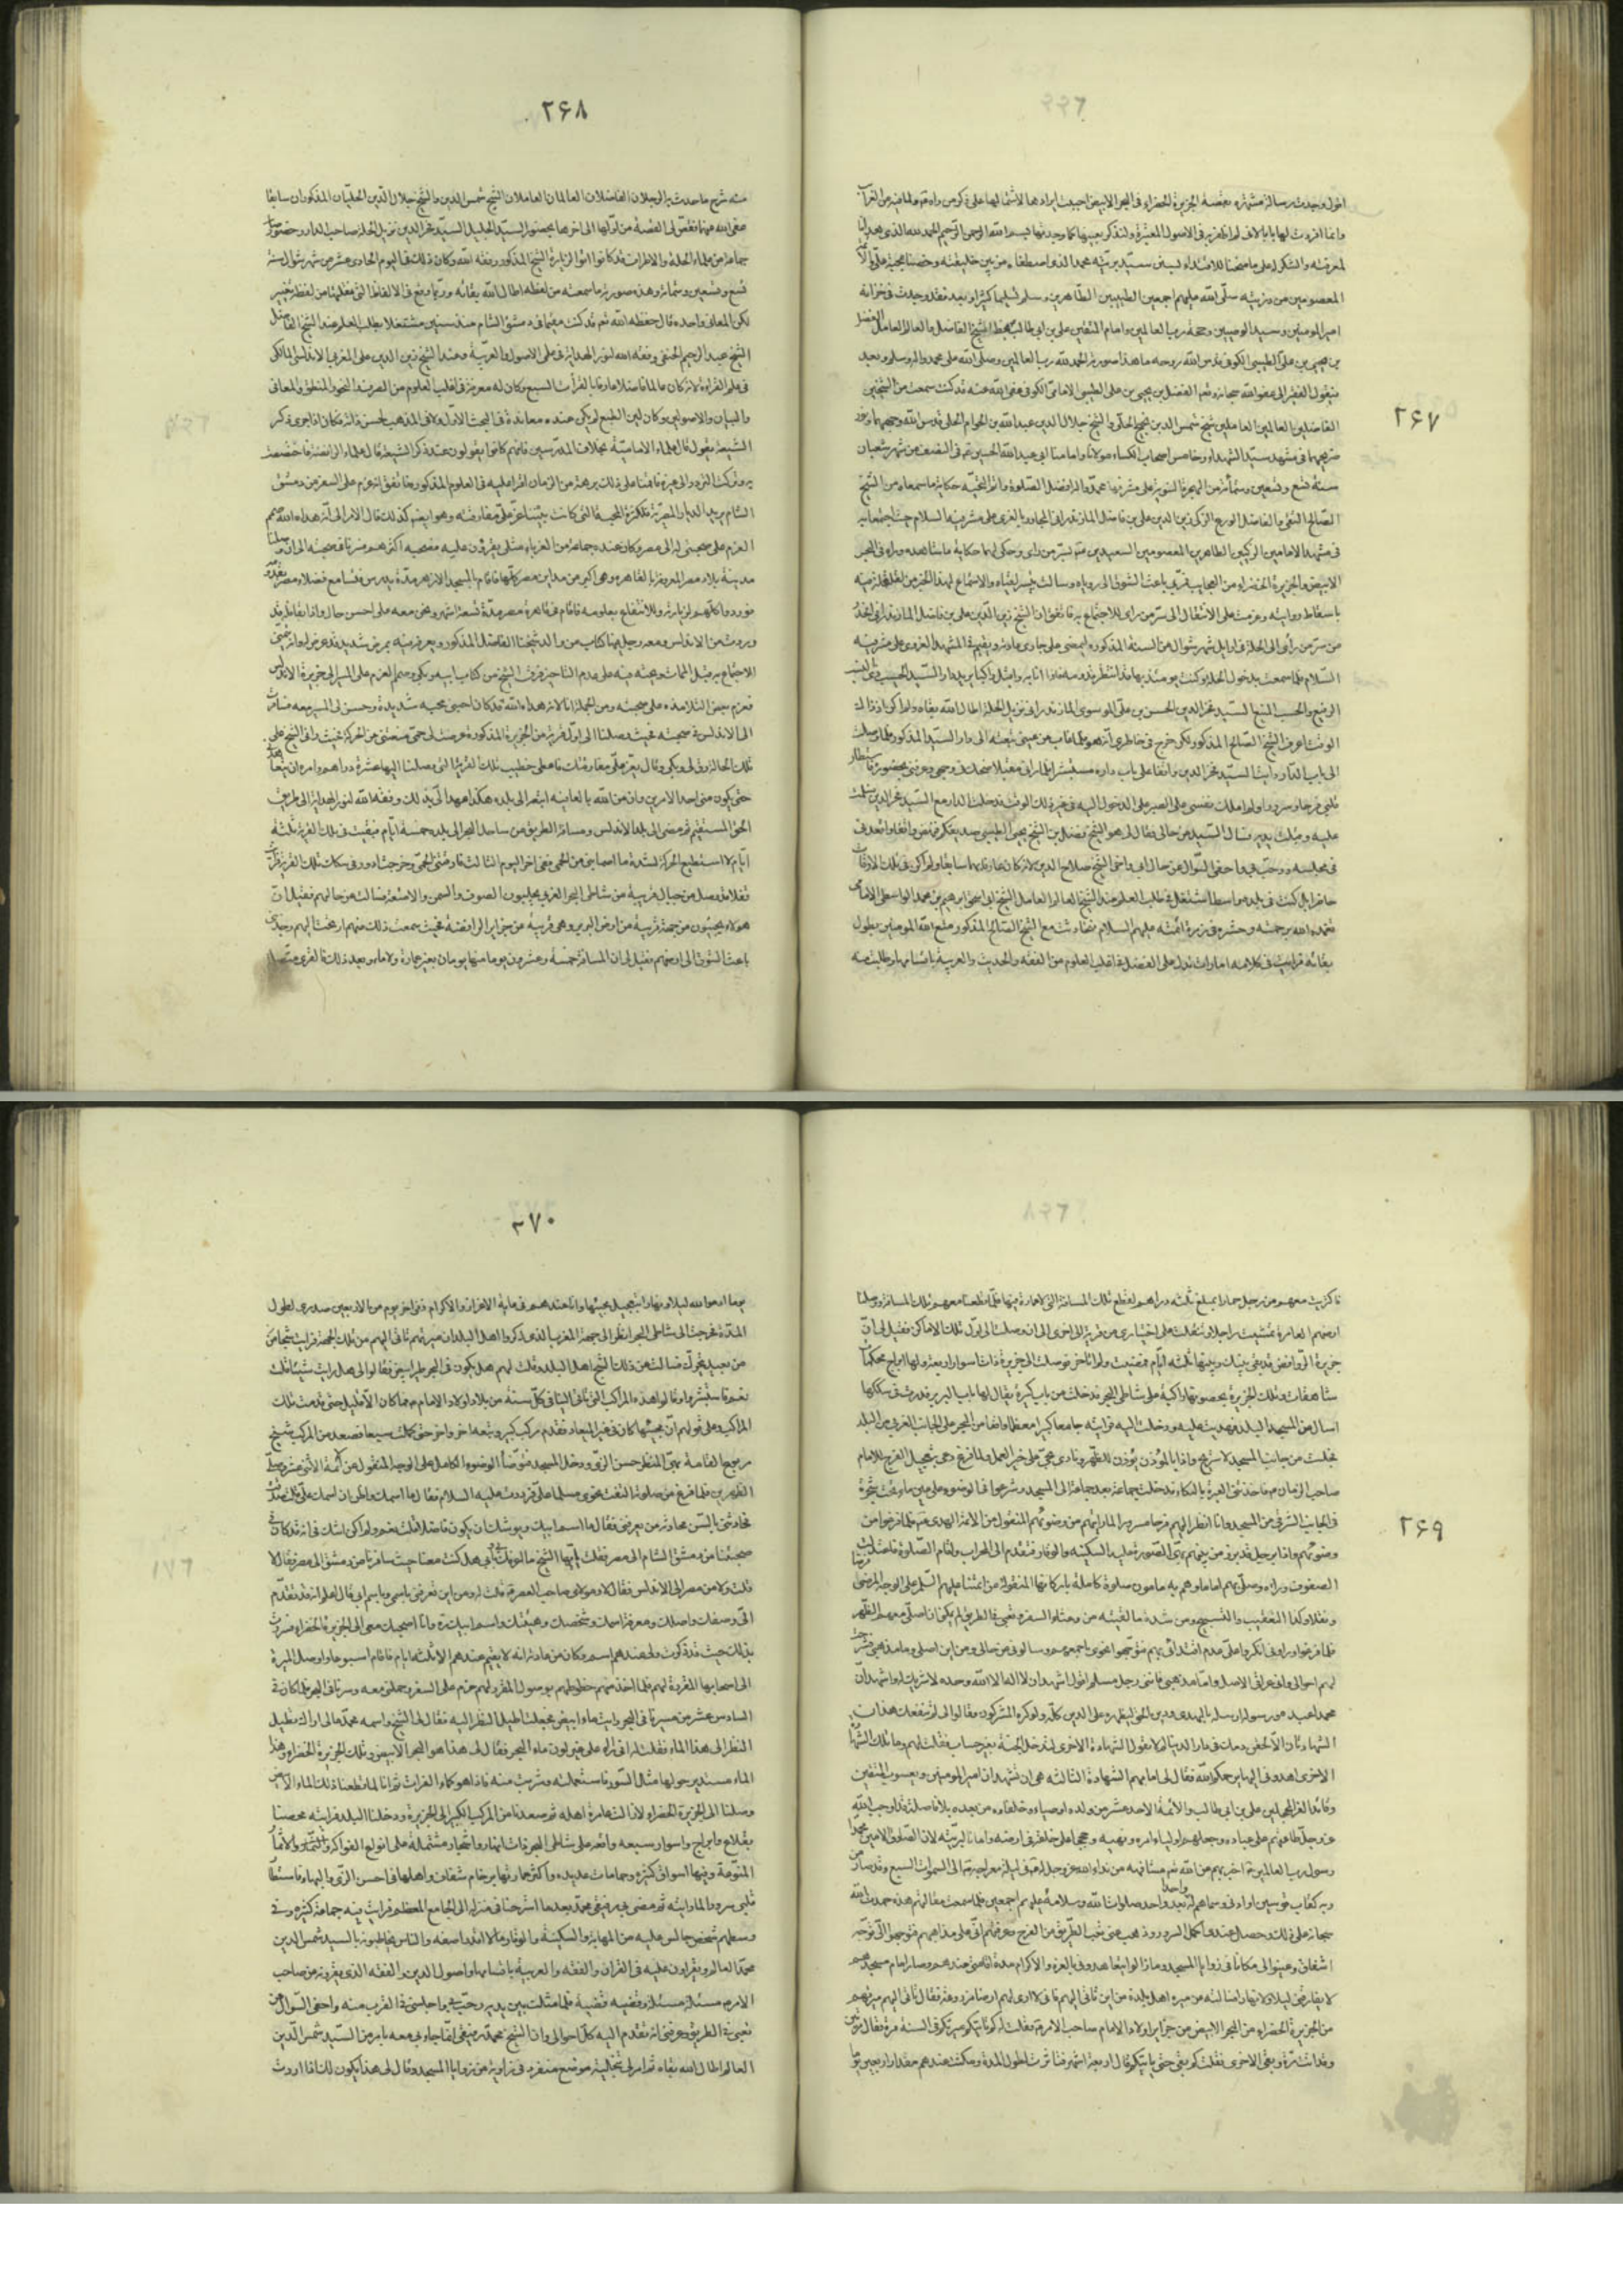 ۲۶۷
اقول وجدت رسالة مشتهرة بقصة الجزيرة الخضراء في البحر الابيض احببت ايرادها لاشتمالها على ذكر من رآه ولما فيه من الغرائب
وانما افردت لها بابا لاني لم اظفر به في الاصول المعتبرة ولنذكرها بعينها كما وجدتها بسم الله الرحمن الرحيم الحمد لله الذي هدانا
لمعرفته والشكر له على ما منحنا للاقتداء بسنن سيد بريته محمد الذي اصطفاه من بين خليقته وخصنا بمحبة علي والائمة
المعصومين من ذريته صلى الله عليهم اجمعين الطيبين الطاهرين وسلم تسليما كثيرا وبعد فقد وجدت في خزانة
امير المومنين وسيد الوصيين وحجة رب العالمين وامام المتقين علي بن ابي طالب بخط الشيخ الفاضل والعالم العامل الفضل
بن يحيى بن علي الطيبي الكوفي قدس الله روحه ما هذا صورته الحمد لله رب العالمين وصلى الله على محمد واله وسلم وبعد
فيقول الفقير الى عفو الله سبحانه وتعم الفضل بن يحيى بن علي الطيبي الامامي الكوفي عفى الله عنه قد كنت سمعت من الشيخين
الفاضلين العالمين العاملين شيخ شمس الدين بن نجيح الحلي والشيخ جلال الدين عبد الله بن الحرام الحلي قدس الله روحيهما ونور
ضريحهما في مشهد سيد الشهداء وخامس اصحاب الكساء مولانا وامامنا ابي عبد الله الحسين في النصف من شهر شعبان
سنة تسع وتسعين وستمائة من الهجرة النبوية على مشرفها محمد واله افضل الصلوة واتم التحية حكاية ما سمعاه من الشيخ
الصالح التقي والفاضل الورع الزكي زين الدين علي بن فاضل المازندراني المجاور بالغري على مشرفه السلام حيث اجتمعا به
في مشهد الامامين الزكيين الطاهرين المعصومين السعيدين بسر من رأى وحكى لهما حكاية ما شاهده ورآه في البحر
الابيض والجزيرة الخضراء من العجايب فمر بي باعث الشوق الى روياه وسالت تيسير لقياه والاستماع لهذا الخبر من لقلقة فيه
باسقاط رواته وعزمت على الانتقال الى سر من رأى للاجتماع به فاتفق ان الشيخ زين الدين علي بن فاضل المازندراني انحدر
من سر من رأى الى الحلة في اوايل شهر شوال من السنة المذكورة ليمضي على جاري عادته ويقيم في المشهد الغروي على مشرفه
السلام فلما سمعت بدخوله الحلة وكنت يومئذ بها قد انتظر قدومه فاذا انا به وقد اقبل راكبا يريد دار السيد الحسيب ذي النسب
الرفيع والحسب المنيع السيد فخر الدين الحسن بن علي الموسوي المازندراني نزيل الحلة اطال الله بقاه ولم اكن اذ ذاك
الوقت اعرف الشيخ الصالح المذكور لكن خرج في خاطري انه هو فلما غاب عن عيني تبعته الى دار السيد المذكور فلما وصلت
الى باب الدار رايت السيد فخر الدين واقفا على باب داره مستبشرا فلما رآني مقبلا ضحك في وجهي وعرفني بحضوره فاستطار
قلبي فرحا وسرورا ولم املك نفسي على الصبر على الدخول اليه في غير ذلك الوقت فدخلت الدار مع السيد فخر الدين فسلمت
عليه وقبلت يديه فسال السيد عن حالي فقال له هو الشيخ فضل بن الشيخ يحيى الطيبي صديقكم فنهض واقفا واقعدني
في مجلسه ورحب بي واحفى السؤال عن حال ابي واخي الشيخ صلاح الدين لانه كان عارفا بهما سابقا ولم اكن في تلك الاوقات
حاضرا بل كنت في بلدة واسط اشتغل في طلب العلم عند الشيخ العالم العامل الشيخ ابي اسحق ابرهيم بن محمد الواسطي الامامي
تغمده الله برحمته وحشره في زمرة ائمته عليهم السلام فتحادثت مع الشيخ الصالح المذكور متع الله المومنين بطول
بقائه فرايت في كلامه امارات تدل على الفضل في اغلب العلوم من الفقه والحديث والعربية باقسامها وطلبت منه
۲۶۸
منه شرح ما حدث به الرجلان الفاضلان العالمان العاملان الشيخ شمس الدين والشيخ جلال الدين الحليان المذكوران سابقا
عفى الله عنهما فقص لي القصة من اولها الى اخرها بحضور السيد الجليل السيد فخر الدين نزيل الحلة صاحب الدار وحضور
جماعة من علماء الحلة والاطراف قد كانوا اتوا لزيارة الشيخ المذكور وفقه الله وكان ذلك في اليوم الحادي عشر من شهر شوال سنة
تسع وتسعين وستمائة وهذه صورة ما سمعته من لفظه اطال الله بقائه وربما وقع في الالفاظ التي نقلتها من لفظه تغيير
لكن المعاني واحدة قال حفظه الله تعم قد كنت مقيما في دمشق الشام منذ سنين مشتغلا بطلب العلم عند الشيخ الفاضل
الشيخ عبد الرحيم الحنفي وفقه الله لنور الهداية في علمي الاصول والعربية وعند الشيخ زين الدين علي المغربي الاندلسي المالكي
في علم القراءة لانه كان عالما فاضلا عارفا بالقراءت السبع وكان له معرفة في اغلب العلوم من الصرف والنحو والمنطق والمعاني
والبيان والاصولين وكان لين الطبع لم يكن عنده معاندة في البحث الاولى ولا في المذهب لحسن ذاته فكان اذا جرى ذكر
الشيعة يقول قال علماء الامامية بخلاف المدرسين فانهم كانوا يقولون عند ذكر الشيعة قال علماء الرافضة فاختصصت
به وتركت التردد الى غيره فاقمنا على ذلك برهة من الزمان اقرأ عليه في العلوم المذكورة فاتفق انه عزم على السفر من دمشق
الشام يريد الديار المصرية فلكثرة المحبة التي كانت بيننا عز علي مفارقته وهو ايضا كذلك فآل الامر الى انه هداه الله صمم
العزم على صحبتي له الى مصر وكان عنده جماعة من الغرباء مثلي يقرؤن عليه فصحبه اكثرهم فسرنا في صحبته الى ان وصلنا
مدينة بلاد مصر المعروفة بالقاهرة وهي اكبر من مداين مصر كلها فاقام بالمسجد الازهر مدة يدرس فتسامع فضلاء مصر بقدومه
فوردوا كلهم لزيارته وللانتفاع بعلومه فاقام في قاهرة مصر مدة تسعة اشهر ونحن معه على احسن حال واذا بقافلة قد
وردت من الاندلس ومع رجل منها كتاب من والد شيخنا الفاضل المذكور يعرفه فيه بمرض شديد قد عرض له وانه يتمنى
الاجتماع به قبل الممات ويحثه فيه على عدم التاخير فرق الشيخ من كتاب ابيه وبكى وصمم العزم على المسير الى جزيرة الاندلس
فعزم بعض التلامذة على صحبته ومن الجملة انا لانه هداه الله قد كان احبني محبة شديدة وحسن لي المسير معه فسافرت
الى الاندلس في صحبته فحيث وصلنا الى اول قرية من الجزيرة المذكورة عرضت لي حمى منعتني من الحركة فحيث راني الشيخ على
تلك الحالة رق لي وبكى وقال يعز علي مفارقتك فاعطى خطيب تلك القرية التي وصلنا اليها عشرة دراهم وامره ان يتعاهدني
حتى يكون مني احد الامرين وان من الله بالعافية اتبعه الى بلده هكذا عهد الي بذلك وفقه الله لنور الهداية الى طريق
الحق المستقيم ثم مضى الى بلد الاندلس ومسافة الطريق من ساحل البحر الى بلده خمسة ايام فبقيت في تلك القرية ثلثة
ايام لا استطيع الحركة لشدة ما اصابني من الحمى ففي اخر اليوم الثالث فارقتني الحمى وخرجت ادور في سكك تلك القرية فرايت
قفلا قد وصل من جبال قريبة من شاطئ البحر الغربي يجلبون الصوف والسمن والامتعة فسالت عن حالهم فقيل ان
هولاء يجيئون من جهة قريبة من ارض البربر وهي قريبة من جزاير الرافضة فحيث سمعت ذلك منهم ارتحت اليهم وجذبني
باعث الشوق الى ارضهم فقيل لي ان المسافة خمسة وعشرون يوما منها يومان بغير عمارة ولا ماء وبعد ذلك فالقرى متصلة
۲۶۹
فاكتريت معهم من رجل حمارا بمبلغ ثلثة دراهم لقطع تلك المسافة التي لا عمارة فيها فلما قطعنا معهم تلك المسافة ووصلنا
ارضهم العامرة تمشيت راجلا وتنقلت على اختياري من قرية الى اخرى الى ان وصلت الى اول تلك الاماكن فقيل لي ان
جزيرة الروافض قد بقي بينك وبينها ثلثة ايام فمضيت ولم اتاخر فوصلت الى جزيرة ذات اسوار اربعة ولها ابراج محكمات
شاهقات وتلك الجزيرة بحصونها راكبة على شاطي البحر فدخلت من باب كبيرة يقال لها باب البربر فدرت في سككها
اسال عن المسجد البلد فهديت عليه ودخلت اليه فرايته جامعا كبيرا معظما واقعا من البحر على الجانب الغربي من البلد
فجلست من جانب المسجد لاستريح واذا بالمؤذن يؤذن للظهر ونادى بحي على خير العمل ولما فرغ دعى بتعجيل الفرج للامام
صاحب الزمان م فاخذتني العبرة بالبكاء فدخلت جماعة بعد جماعة الى المسجد وشرعوا في الوضوء على عين ماء تحت شجرة
في الجانب الشرقي من المسجد وانا انظر اليهم فرحا مسرورا لما رايتهم من وضوئهم المنقول من الائمة الهدى فلما فرغوا من
وضوئهم واذا برجل قد برز من بينهم بهي الصورة عليه السكينة والوقار فتقدم الى المحراب واقام الصلوة فاعتدلت
الصفوف وراءه وصلى بهم اماما وهم به مامومون صلوة كاملة باركانها المنقولة عن ائمتنا عليهم السلم على الوجه المرضي فرضا
ونفلا وكذا التعقيب والتسبيح ومن شدة ما لقيته من وعثاء السفر وتعبي في الطريق لم يمكني ان اصلي معهم الظهر
فلما فرغوا ورأوني انكروا علي عدم اقتدائي بهم فتوجهوا نحوي باجمعهم وسالوني عن حالي ومن اين اصلي وما مذهبي فشرحت
لهم احوالي واني عراقي الاصل واما مذهبي فانني رجل مسلم اقول اشهد ان لا اله الا الله وحده لا شريك له واشهد ان
محمدا عبده ورسوله ارسله بالهدى ودين الحق ليظهره على الدين كله ولو كره المشركون فقالوا لي لم تنفعك هذان
الشهادتان الا لحقن دمك في دار الدنيا لم لا تقول الشهادة الاخرى لتدخل الجنة بغير حساب فقلت لهم وما تلك الشهادة
الاخرى اهدوني اليها يرحمكم الله فقال لي امامهم الشهادة الثالثة هي ان تشهد ان امير المومنين ويعسوب المتقين
وقائد الغر المحجلين علي بن ابي طالب والائمة الاحد عشر من ولده اوصياء وخلفاوه من بعده بلا فاصلة قد اوجب الله
عز وجل طاعتهم على عباده وجعلهم اولياء امره ونهيه وحججا على خلقه في ارضه وامانا لبريته لان الصادق الامين محمدا
رسول رب العالمين اخبر بهم عن الله تعم مشافهة من نداء الله عز وجل له في ليلة معراجه الى السموات السبع وقد صار من
ربه كقاب قوسين او ادنى وسماهم له واحدا بعد واحد صلوات الله وسلامه عليهم اجمعين فلما سمعت مقالتهم هذه حمدت الله
سبحانه على ذلك وحصل عندي اكمل السرور وذهب عني تعب الطريق من الفرح وعرفتهم اني على مذاهبهم فتوجهوا الي توجه
اشفاق وعينوا لي مكانا في زوايا المسجد وما زالوا يتعاهدوني بالعزة والاكرام مدة اقامتي عندهم وصار امام مسجدهم
لا يفارقني ليلا ولا نهارا فسالته عن ميرة اهل بلده من اين تاتي اليهم فاني لا ارى لهم ارضا مزروعة فقال تاتي اليهم ميرتهم
من الجزيرة الخضراء من البحر الابيض من جزاير اولاد الامام صاحب الامر فقلت له كم تاتيكم ميرتكم في السنة مرة فقال مرتين
وقد اتت مرة وبقى الاخرى فقلت كم بقي حتى ياتيكم قال اربعة اشهر فتاثرت لطول المدة ومكثت عندهم مقدار اربعين يوما
۲۷۰
يوما ادعو الله ليلا ونهارا بتعجيل مجيئها وانا عندهم في غاية الاعزاز والاكرام ففي اخر يوم من الاربعين ضاق صدري لطول
المدة فخرجت الى شاطي البحر انظر الى جهة المغرب الذي ذكروا اهل البلد ان ميرتهم تاتي اليهم من تلك الجهة فرايت شبحا من
من بعيد يتحرك فسالت عن ذلك الشبح اهل البلد وقلت لهم هل يكون في البحر طير ابيض فقالوا لي لا هل رايت شيئا قلت
نعم فاستبشروا وقالوا هذه المراكب التي تاتي الينا في كل سنة من بلاد اولاد الامام م فما كان الا قليل حتى قدمت تلك
المراكب وعلى قولهم ان مجيئها كان في غير الميعاد فقدم مركب كبير وتبعه اخر واخر حتى كملت سبعا فصعد من المركب شيخ
مربوع القامة بهي المنظر حسن الزي ودخل المسجد فتوضأ الوضوء الكامل على الوجه المنقول عن ائمة الاثني عشر وصلى
الظهرين فلما فرغ من صلوته التفت نحوي مسلما علي فرددت عليه السلام فقال ما اسمك واظن ان اسمك علي قلت صدقت
فحادثني بالسر محادثة من يعرفني فقال ما اسم ابيك ويوشك ان يكون فاضلا قلت نعم ولم اكن اشك في انه قد كان في
صحبتنا من دمشق الشام الى مصر فقلت ايها الشيخ ما اعرفك بي وبابي هل كنت معنا حيث سافرنا من دمشق الى مصر فقال لا
قلت ولا من مصر الى الاندلس فقال لا ومولاي صاحب العصر قلت له ومن اين تعرفني باسمي وباسم ابي قال اعلم انه قد تقدم
الي وصفك واصلك ومعرفة اسمك وشخصك وهيئتك واسم ابيك ره وانا اصحبك معي الى الجزيرة الخضراء فسررت
بذلك حيث قد ذكرت ولي عندهم اسم وكان من عادته انه لا يقيم عندهم الا ثلثة ايام فاقام اسبوعا واوصل الميرة
الى اصحابها المقررة لهم فلما اخذ منهم خطوطهم بوصول المقرر لهم عزم على السفر وحملني معه وسرنا في البحر فلما كان في
السادس عشر من مسيرنا في البحر رايت ماء ابيض فجعلت اطيل النظر اليه فقال لي الشيخ واسمه محمد مالي اراك تطيل
النظر الى هذا الماء فقلت له اني اراه على غير لون ماء البحر فقال لي هذا هو البحر الابيض وتلك الجزيرة الخضراء وهذا
الماء مستدير حولها مثل السور فاستحملته وشربت منه فاذا هو كماء الفرات ثم انا لما قطعنا ذلك الماء الابيض
وصلنا الى الجزيرة الخضراء لا زالت عامرة اهله ثم صعدنا من المركب الكبير الى الجزيرة ودخلنا البلد فرايته محصنا
بقلاع وابراج واسوار سبعة واقعة على شاطي البحر ذات انهار واشجار مشتملة على انواع الفواكه والثمار والاثمار
المنوعة وفيها اسواق كثيرة وحمامات عديدة واكثر عمارتها برخام شفاف واهلها في احسن الزي والبهاء فاستطار
قلبي سرورا لما رايته ثم مضى بي رفيقي محمد بعد ما استرحنا في منزله الى الجامع المعظم فرايت فيه جماعة كثيرة وفي
وسطهم شخص جالس عليه من المهابة والسكينة والوقار ما لا اقدر اصفه والناس يخاطبونه بالسيد شمس الدين
محمد العالم ويقراون عليه في القران والفقه والعربية باقسامها واصول الدين والفقه الذي يقرونه عن صاحب
الامر م مسئلة مسئلة وقضية قضية فلما مثلت بين يديه رحب بي واجلسني في القرب منه واحفى السؤال عن
تعبي في الطريق وعرفني انه تقدم اليه كل احوالي وان الشيخ محمد رفيقي انما جاء بي معه بامر من السيد شمس الدين
العالم اطال الله بقاه ثم امر لي بتخلية موضع منفرد في زاوية من زوايا المسجد وقال لي هذا يكون لك اذا اردت